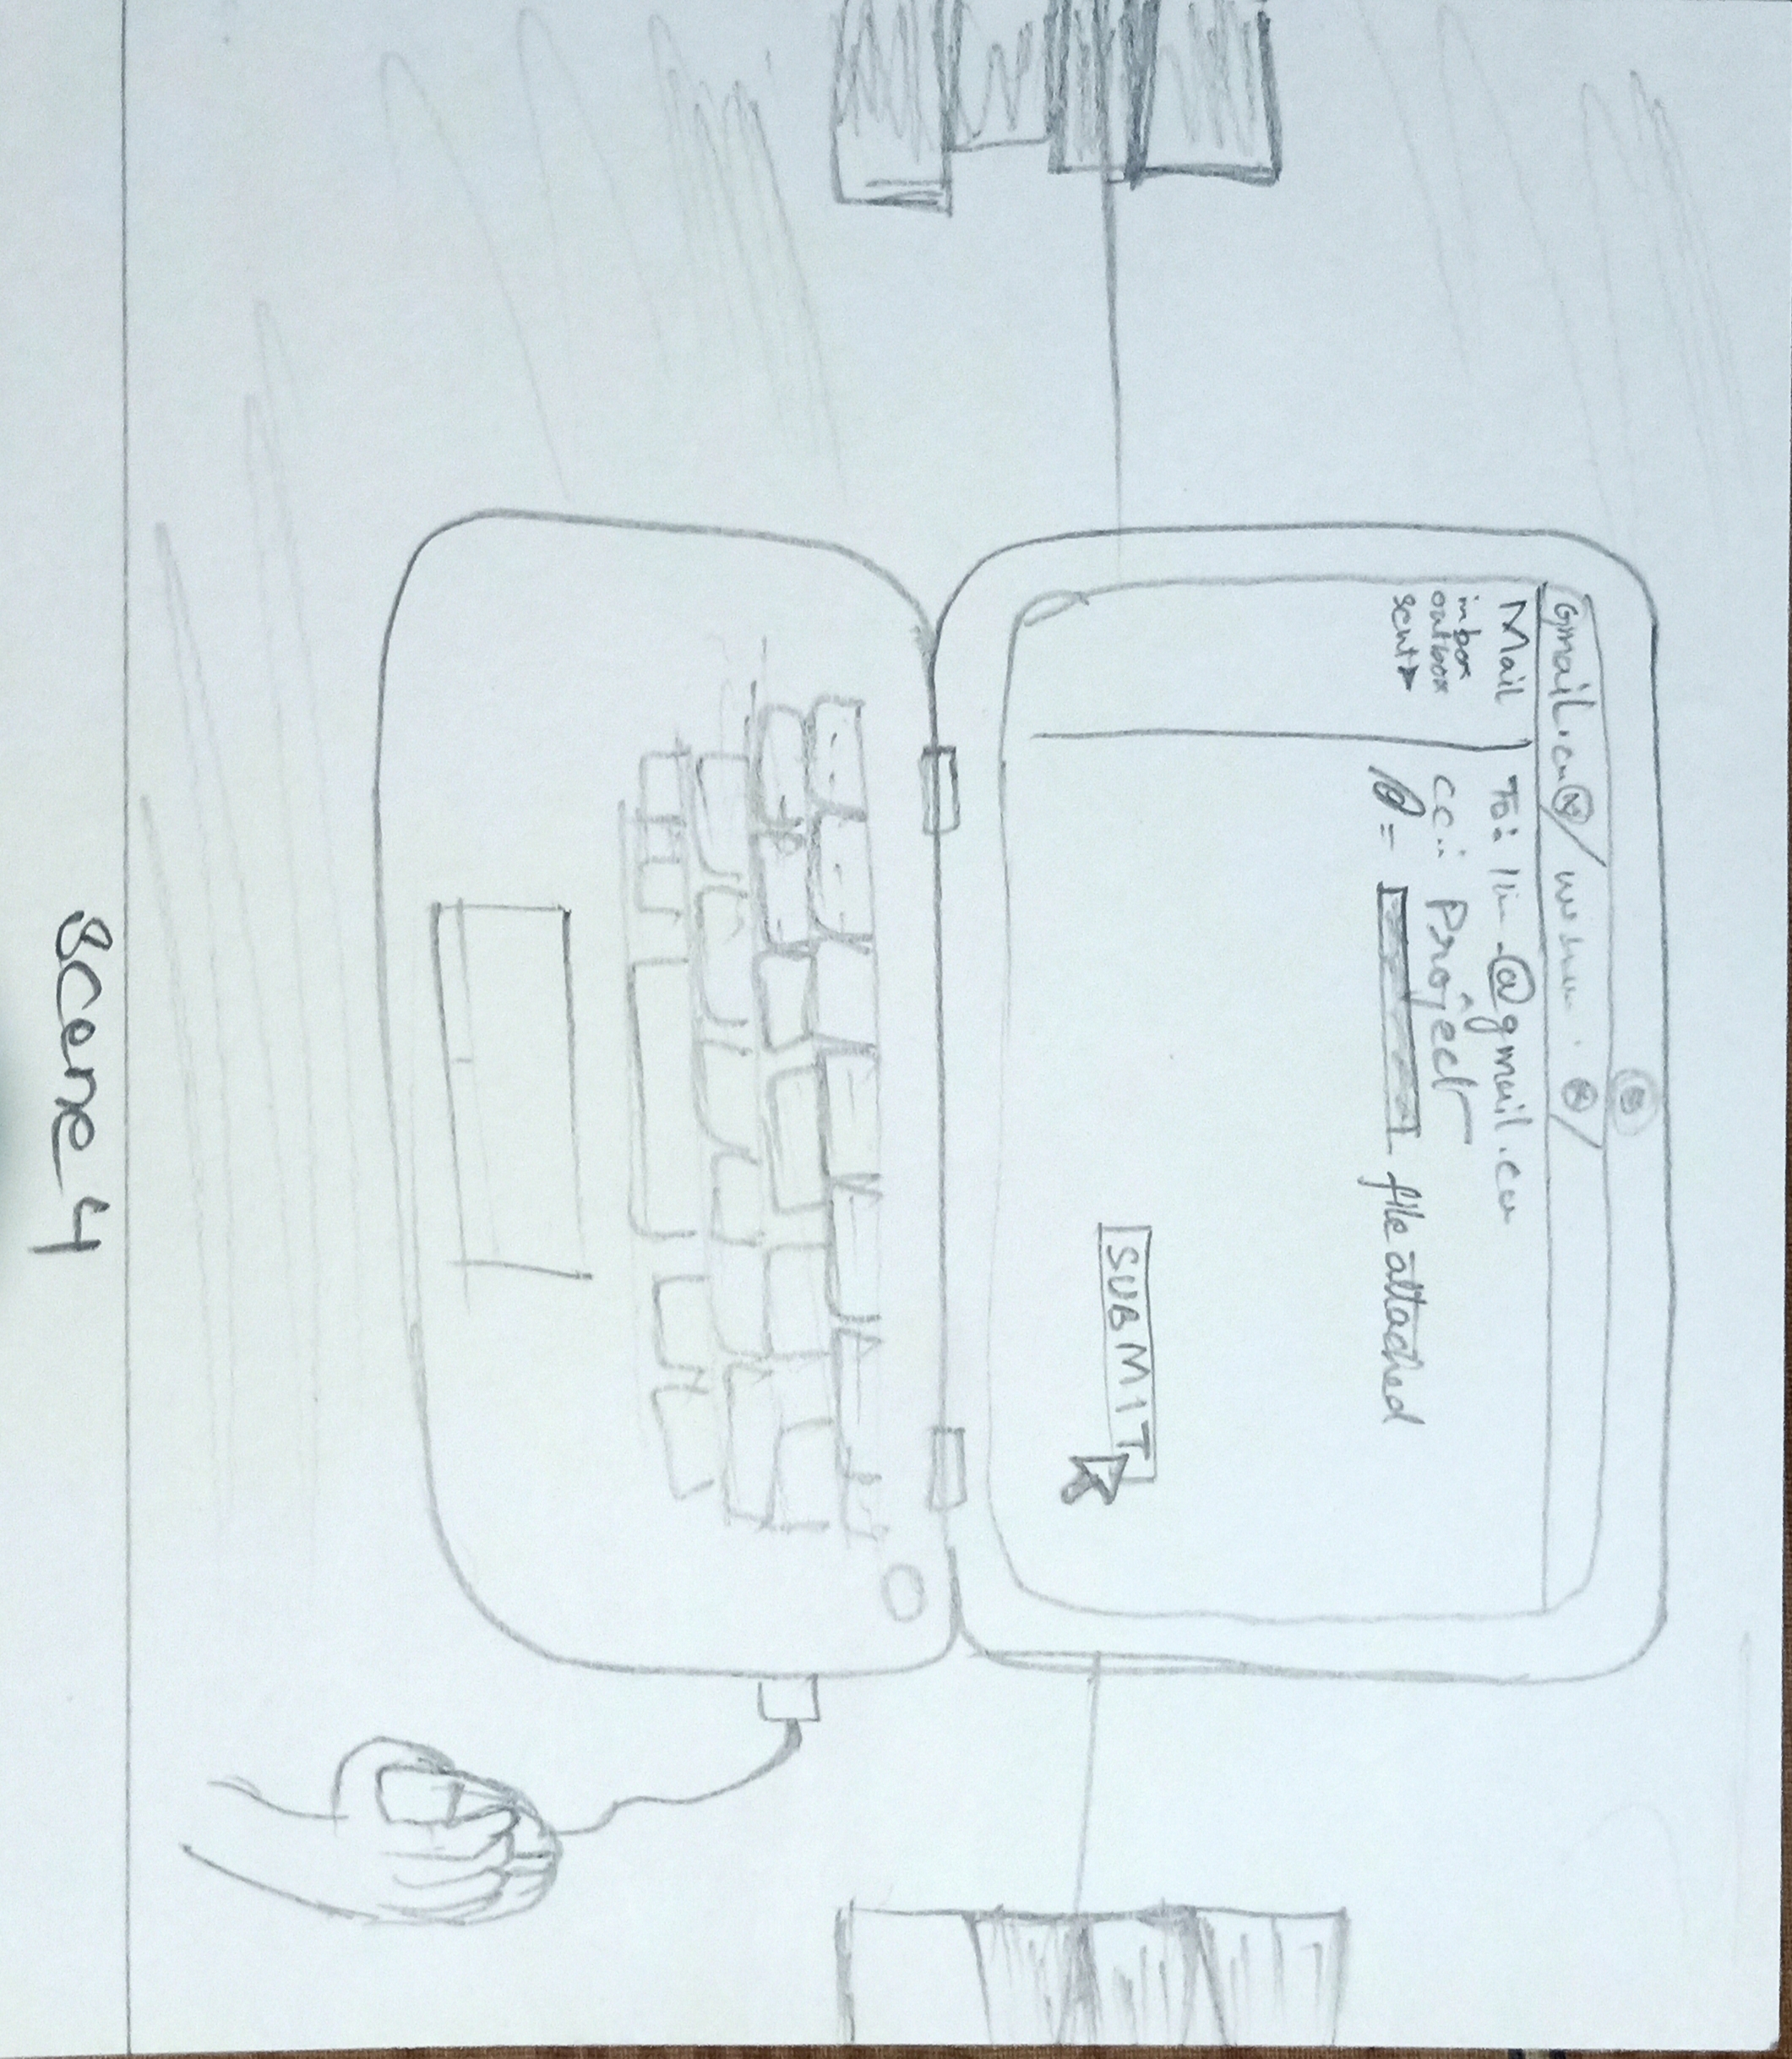 Gmail.c
Mail
inbox
outbox
sent
To: @gmail.c
cc: Project
= file attached
SUBMIT
Scene 4